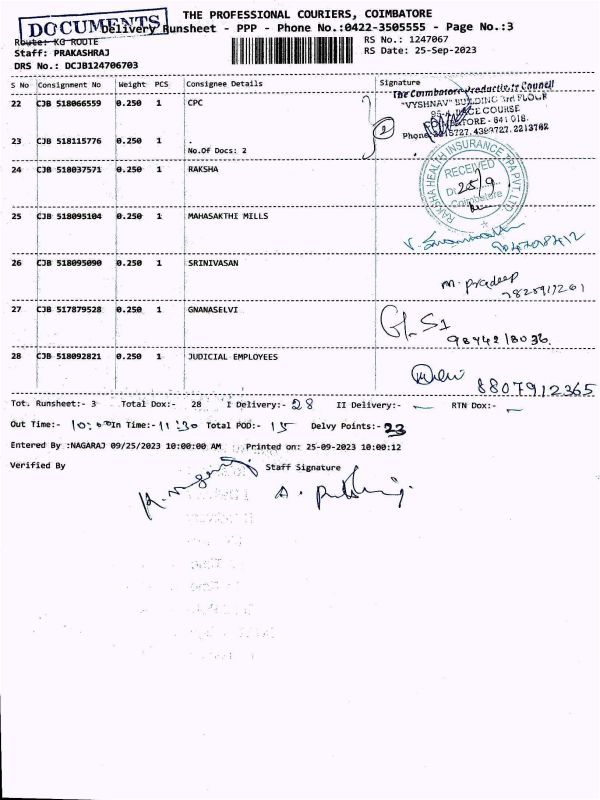 THE PROFESSIONAL COURIERS, COIMBATORE
DOCUMENTS
Delivery Runsheet - PPP - Phone No.:0422-3505555 - Page No.:3
Route: KG ROUTE
RS No.: 1247067
Staff: PRAKASHRAJ
RS Date: 25-Sep-2023
DRS No.: DCJB124706703
S No Consignment No Weight PCS Consignee Details Signature
The Coimbatore Productivity Council
"VYSHNAV" BUILDING 3rd FLOOR
RACE COURSE
COIMBATORE - 641 018.
22 CJB 518066559 0.250 1 CPC
2
23 CJB 518115776 0.250 1 .
No.Of Docs: 2
24 CJB 518037571 0.250 1 RAKSHA
RAKSHA HEALTH INSURANCE TPA PVT. LTD.
RECEIVED
25/9
Coimbatore
25 CJB 518095104 0.250 1 MAHASAKTHI MILLS
26 CJB 518095090 0.250 1 SRINIVASAN
m. pradeep
27 CJB 517879528 0.250 1 GNANASELVI
28 CJB 518092821 0.250 1 JUDICIAL EMPLOYEES
8807912365
Tot. Runsheet:- 3 Total Dox:- 28 I Delivery:- 28 II Delivery:- — RTN Dox:- —
Out Time:- 10:00 In Time:- 11:30 Total POD:- 15 Delvy Points:- 23
Entered By :NAGARAJ 09/25/2023 10:00:00 AM Printed on: 25-09-2023 10:00:12
Verified By Staff Signature